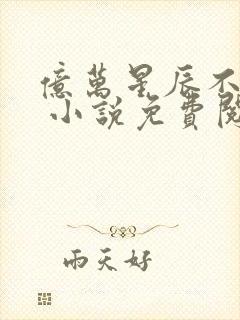 億萬星辰不
小說免費閱
雨天好